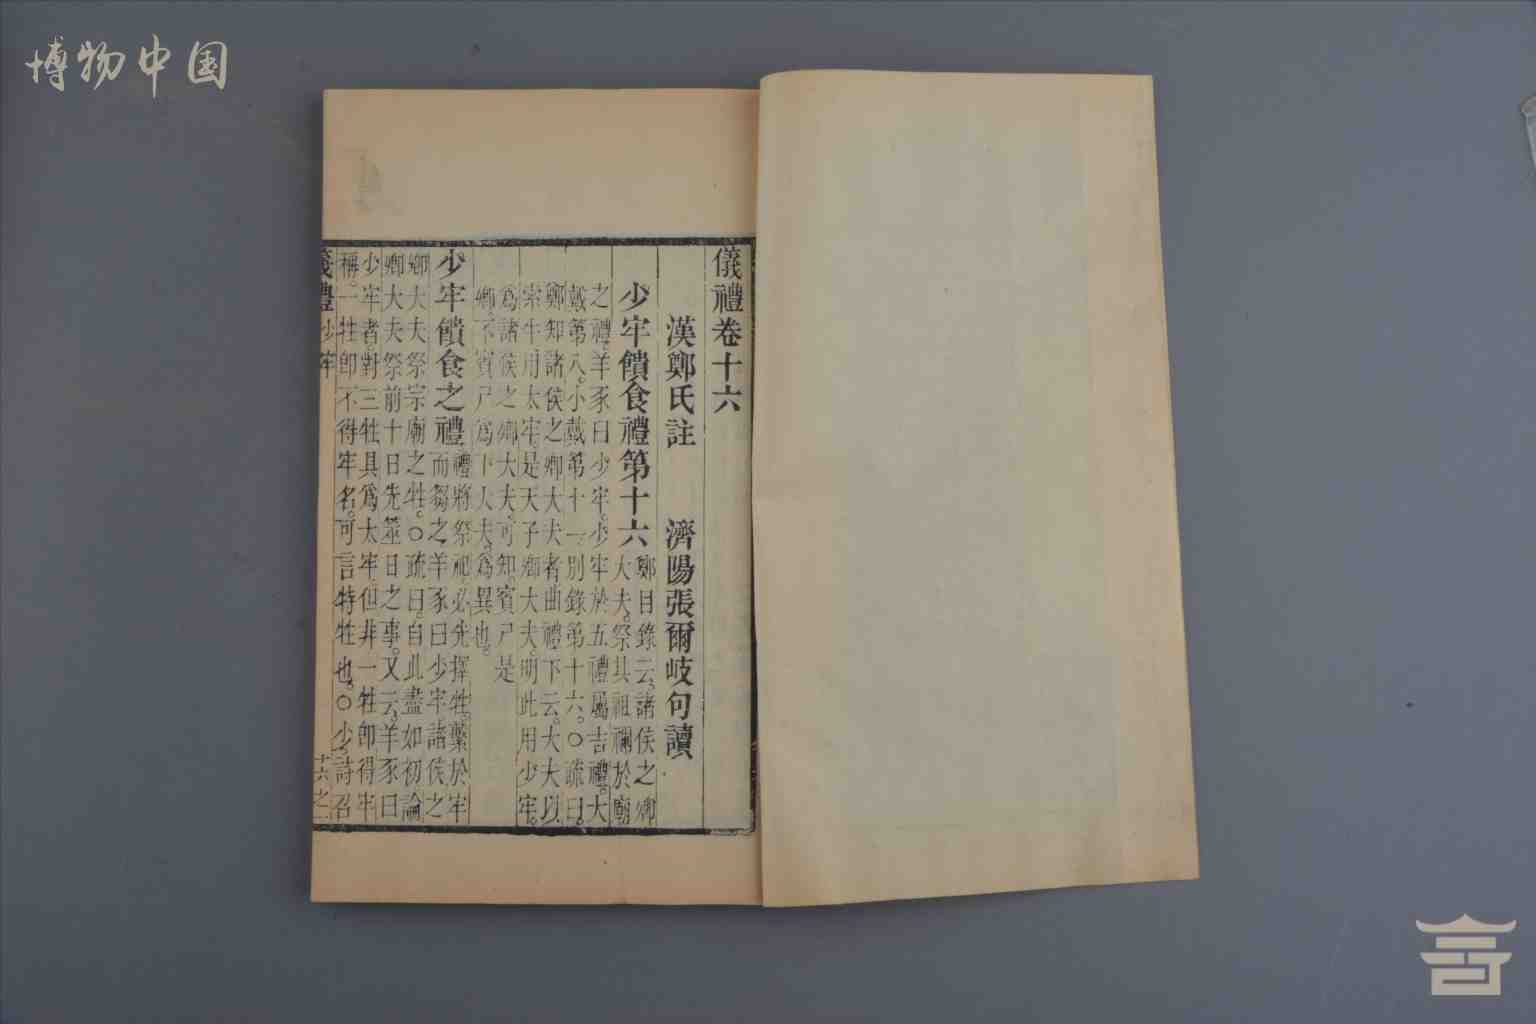 博物中国
儀禮卷十六
漢鄭氏註 濟陽張爾岐句讀
少牢饋食禮第十六 鄭目錄云。諸侯之卿
大夫。祭其祖禰於廟
之禮。羊豕曰少牢。少牢於五禮屬吉禮。大
戴第八。小戴第十一。別錄第十六。○疏曰。
鄭知諸侯之卿大夫者。曲禮下云。大夫以
索牛。用太牢。是天子卿大夫。明此用少牢。
爲諸侯之卿大夫。可知。賓尸是
卿。不賓尸爲下大夫。爲異也。
少牢饋食之禮 禮將祭祀。必先擇牲。繫於牢
而芻之。羊豕曰少牢。諸侯之
卿大夫祭宗廟之牲。○疏曰。自此盡如初。論
卿大夫祭前十日先筮日之事。又云。羊豕曰
少牢者。對三牲具爲太牢。但非一牲卽得牢
稱。一牲卽不得牢名。可言特牲也。○少。詩召
儀禮 少牢 十六之一